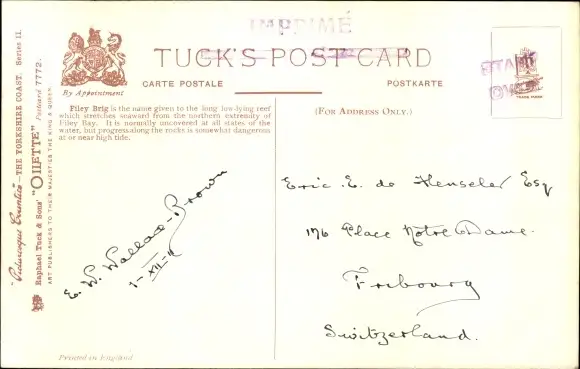 IMPRIMÉ
TUCK'S POST CARD
CARTE POSTALE
POSTKARTE
By Appointment
Filey Brig is the name given to the long low-lying reef
which stretches seaward from the northern extremity of
Filey Bay. It is normally uncovered at all states of the
water, but progress along the rocks is somewhat dangerous
at or near high tide.
(FOR ADDRESS ONLY.)
STAMP
TRADE MARK
"Picturesque Counties"—THE YORKSHIRE COAST. Series II.
Raphael Tuck & Sons' "OILETTE" Postcard 7772.
ART PUBLISHERS TO THEIR MAJESTIES THE KING & QUEEN.
E. W. Wallace-Brown
1-XII-11
Eric. E. de Henseler Esq
176 Place Notre Dame.
Fribourg
Switzerland.
Printed in England